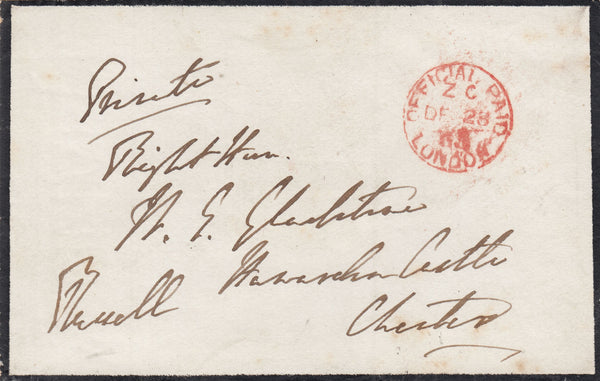 Private
Right Hon.
W. E. Gladstone
Hawarden Castle
Chester
OFFICIAL PAID
Z C
DE 28
LONDON